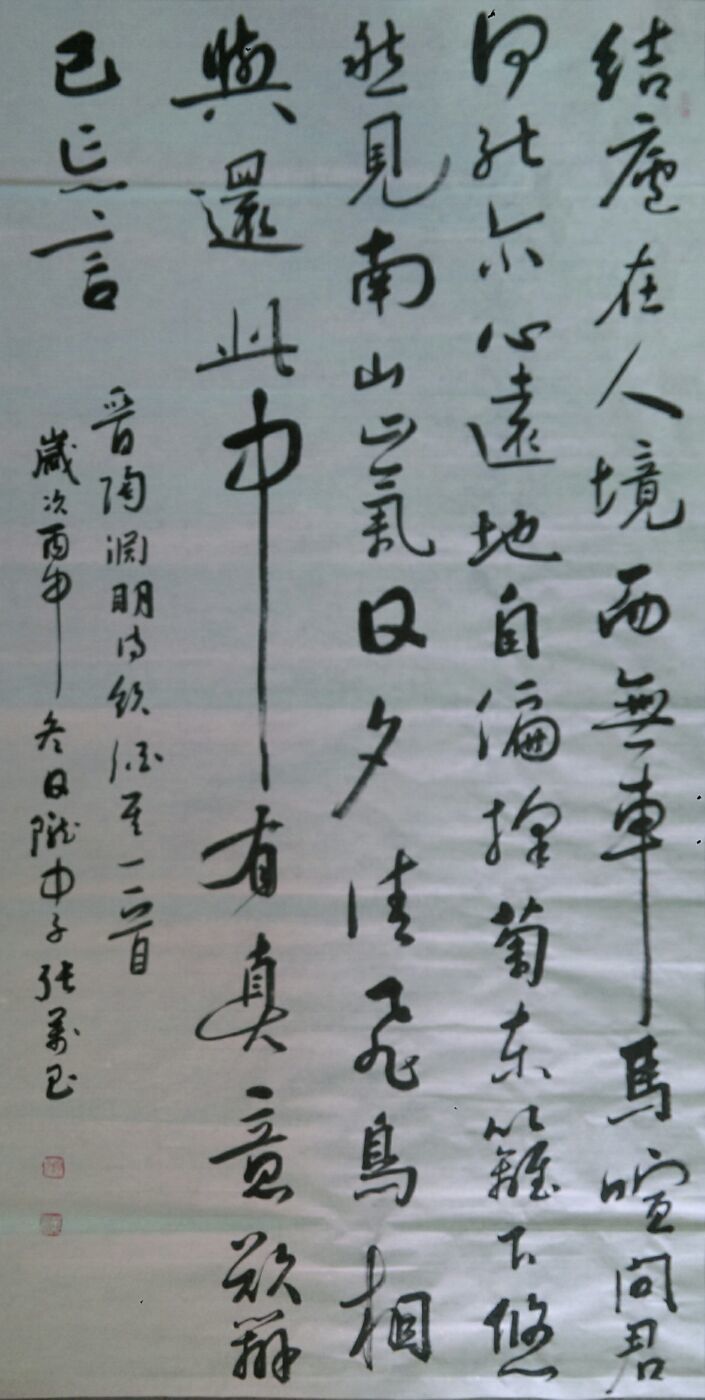 結廬在人境而無車馬喧問君
何能尔心遠地自偏採菊東籬下悠
然見南山正氣日夕清飛鳥相
與還此中有真意欲辯
已忘言
晉陶淵明诗飲酒其一一首
歲次丙申冬日隴中子張萬玉